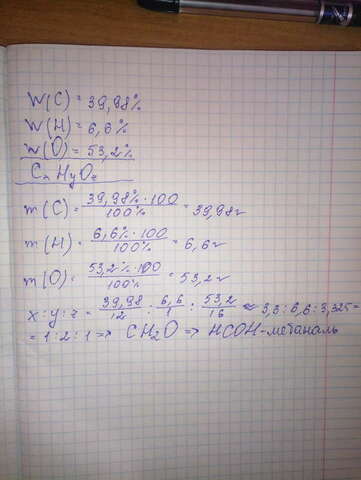 W(C) = 39,98%
W(H) = 6,6%
W(O) = 53,2%
CxHyOz
m(C) = 39,98% · 100 / 100% = 39,98г
m(H) = 6,6% · 100 / 100% = 6,6г
m(O) = 53,2% · 100 / 100% = 53,2г
x : y : z = 39,98/12 : 6,6/1 : 53,2/16 ≈ 3,3 : 6,6 : 3,325 =
= 1 : 2 : 1 => CH2O => HCOH - метаналь